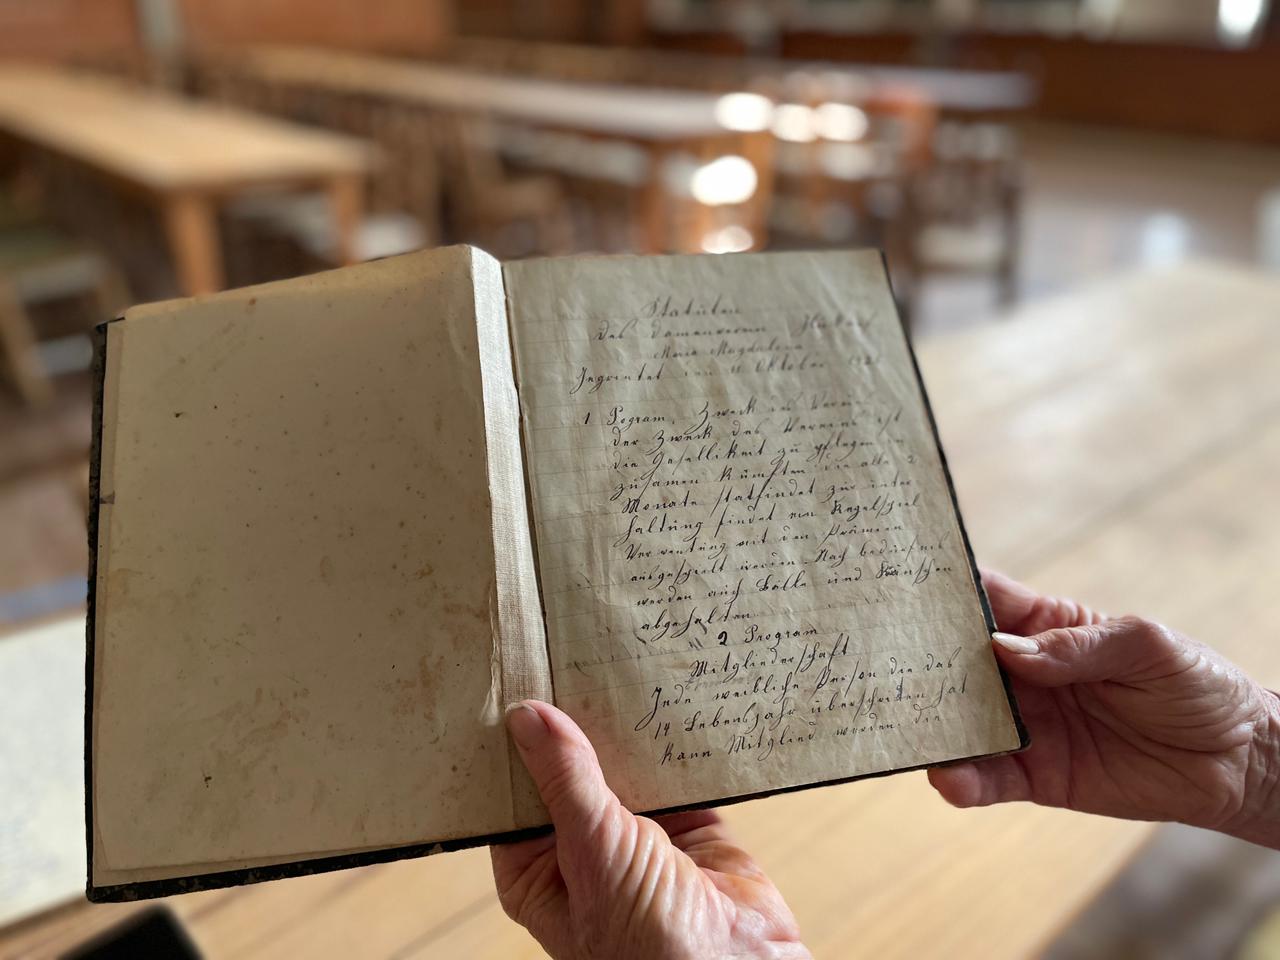 Statuten
des Damenverein
Maria Magdalena
Jegrüntet den 11 Oktober
1 Pogram, Zweck des Verein
der Zweck des Vereins ist
die Geselligkeit zu pflegen
zusamen künften die alle 2
Monate statfindet zur unter
haltung findet ein Kegelspiel
Verwentung mit den Prämien
ausgespielt werden. Nach bedürfnis
werden auch Bälle und Kränschen
abgehalten
2 Program
Mitgliederschaft
Jede weibliche Person die das
14 Lebensjahr überschriten hat
kann Mitglied werden. die